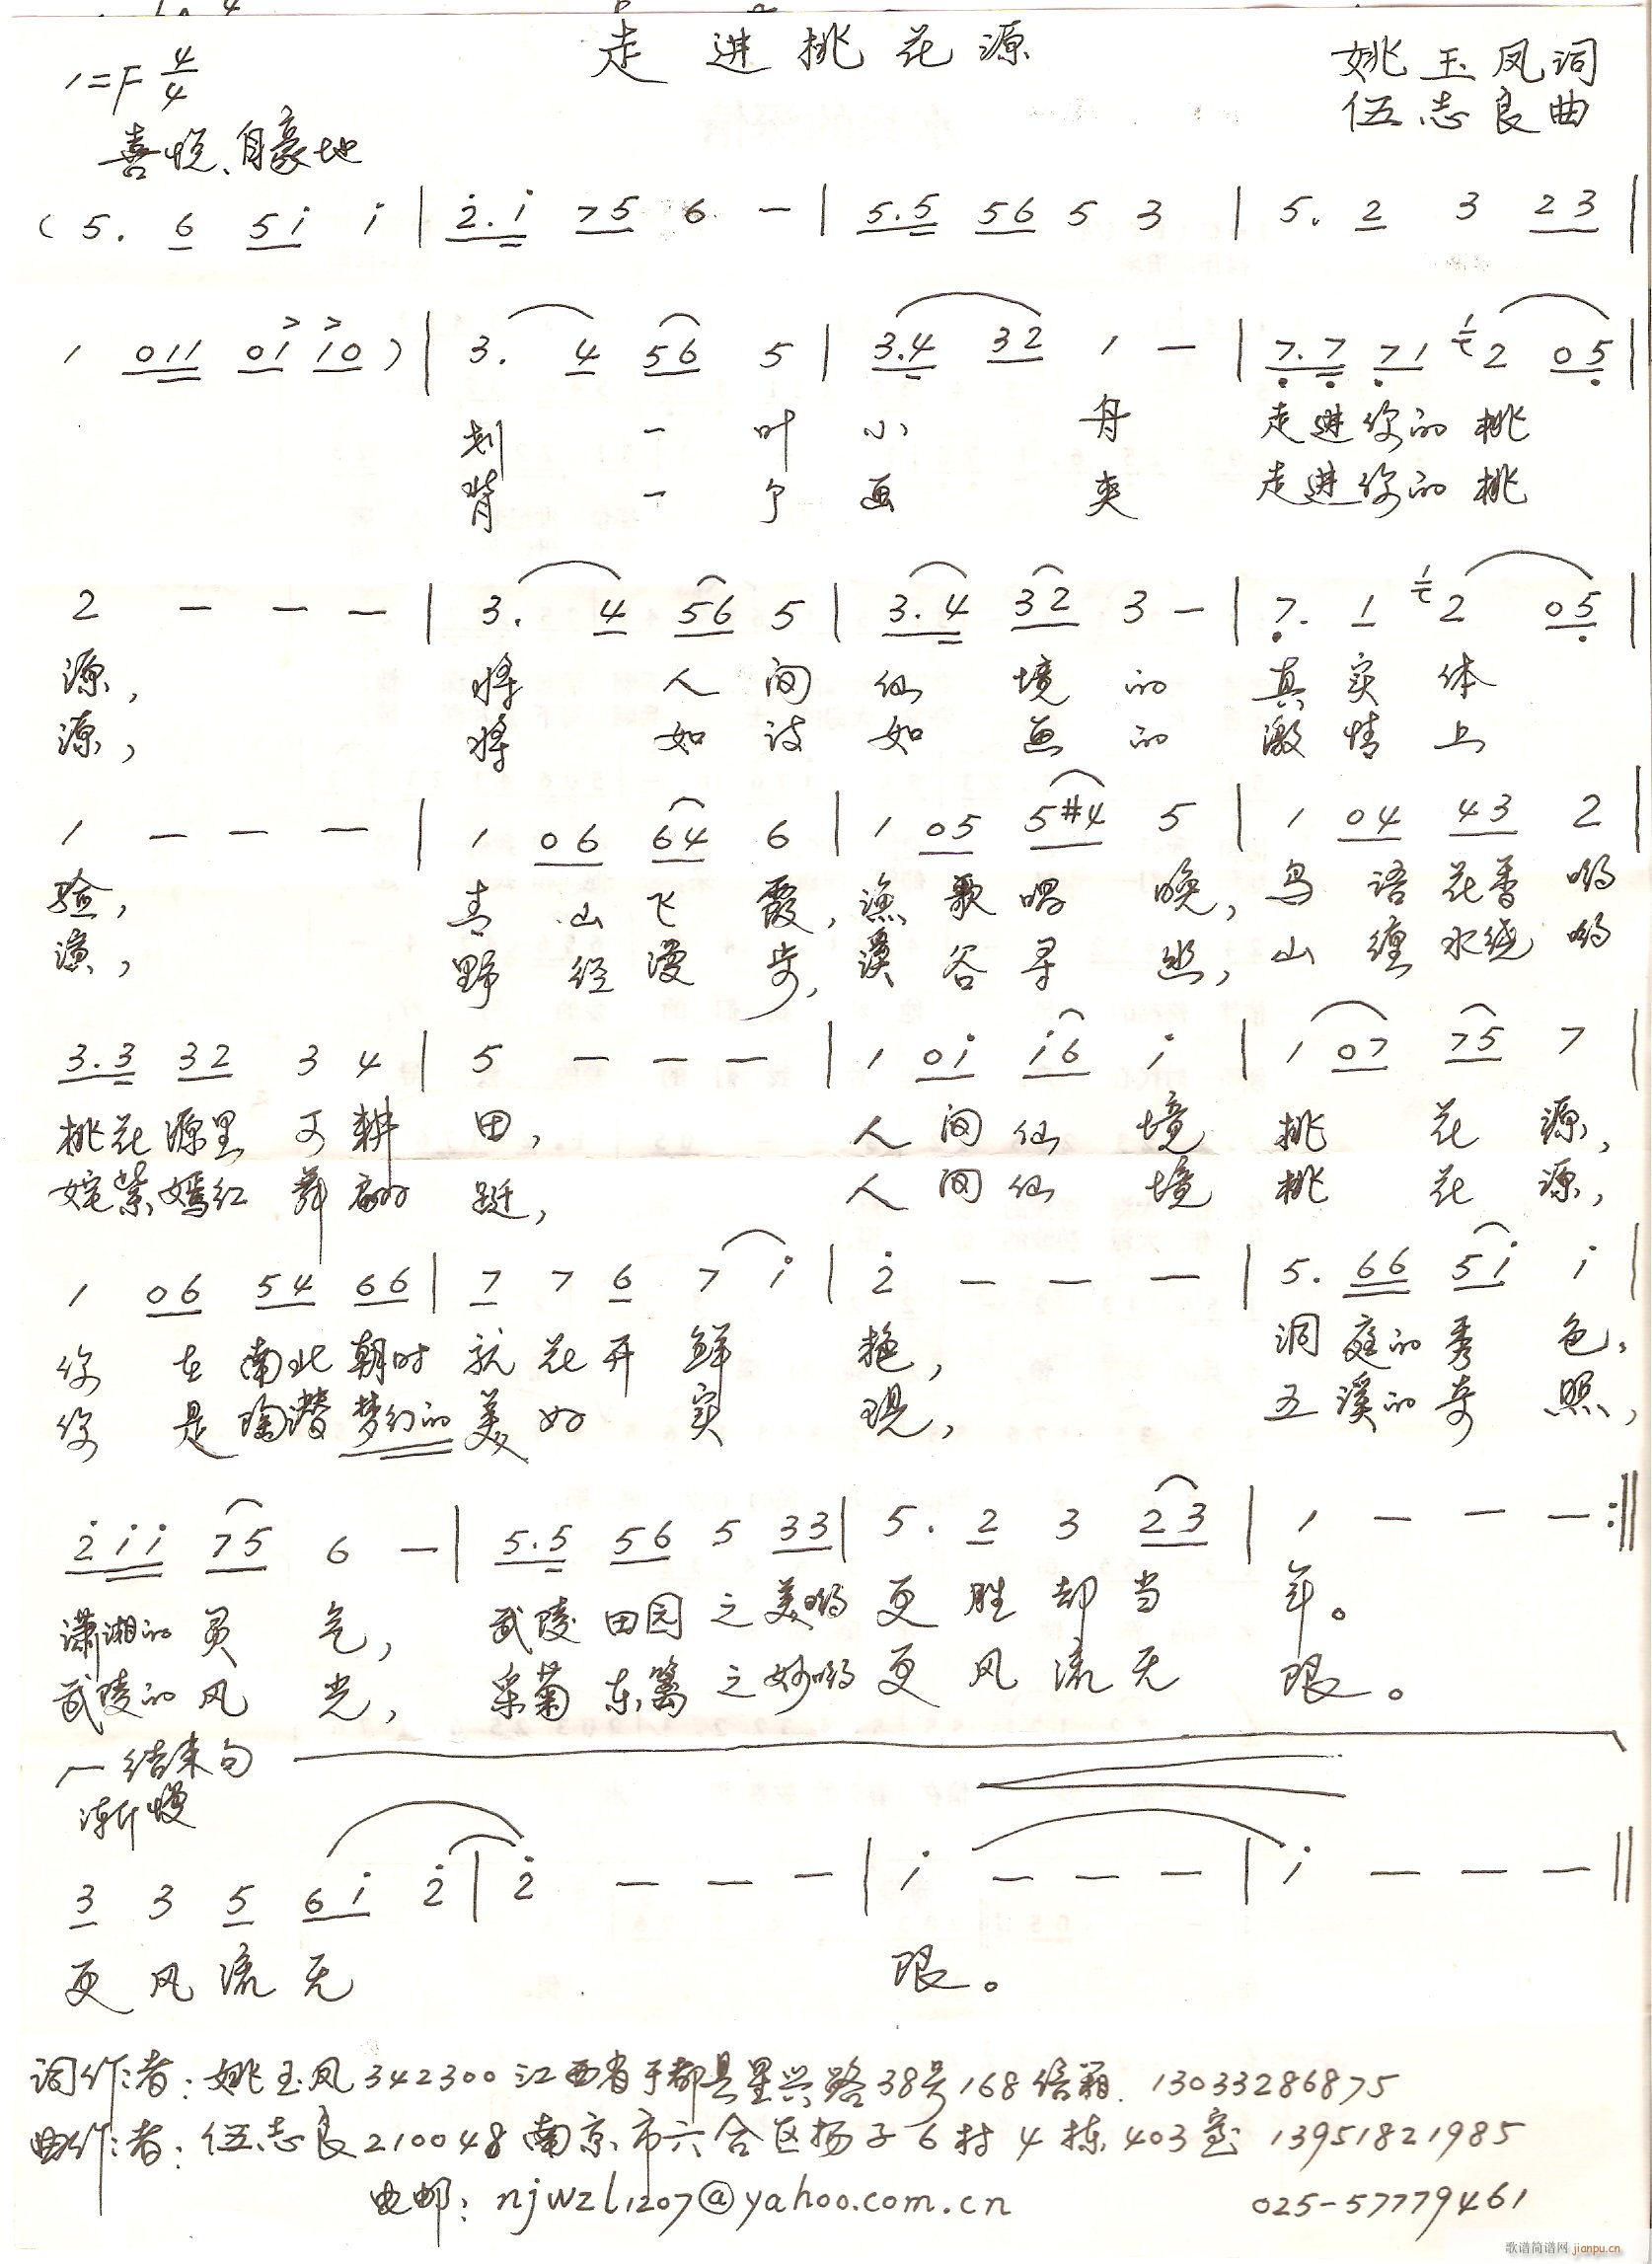 走进桃花源
1=F 4/4
姚玉凤词
伍志良曲
喜悦、自豪地
(5. 6 5i i | 2.i 75 6 — | 5.5 56 5 3 | 5. 2 3 23 |
1 011 01 10) | 3. 4 56 5 | 3.4 32 1 — | 7.7 71 2 05 |
划 一叶小 舟 走进你的桃
背 一个画 夹 走进你的桃
2 — — — | 3. 4 56 5 | 3.4 32 3 — | 7. 1 2 05 |
源, 将 人间仙境的 真实体
源, 将 如诗如画的 激情上
1 — — — | 1 06 64 6 | 1 05 5#4 5 | 1 04 43 2 |
验, 青山飞霞,渔歌唱晚,鸟语花香哟
演, 野径漫步,溪谷寻幽,山缠水绕哟
3.3 32 3 4 | 5 — — — | 1 0i i6 i | 1 07 75 7 |
桃花源里可耕田, 人间仙境 桃花源,
姹紫嫣红舞翩跹, 人间仙境 桃花源,
1 06 54 66 | 7 7 6 7 i | 2 — — — | 5. 66 5i i |
你在南北朝时就花开鲜艳, 洞庭的秀色,
你是陶潜梦幻的美好实现, 五溪的奇照,
2ii 75 6 — | 5.5 56 5 33 | 5. 2 3 23 | 1 — — — :||
潇湘的灵气, 武陵田园之美哟更胜却当年。
武陵的风光, 采菊东篱之妙哟更风流无限。
结束句
渐慢
3 3 5 6i 2 | 2 — — — | i — — — | i — — — ||
更风流无 限。
词作者:姚玉凤342300江西省于都县里兴路38号168信箱. 13033286875
曲作者:伍志良210048南京市六合区扬子6村4栋403室 13951821985
电邮:njwzl1207@yahoo.com.cn 025-57779461
歌谱简谱网 jianpu.cn